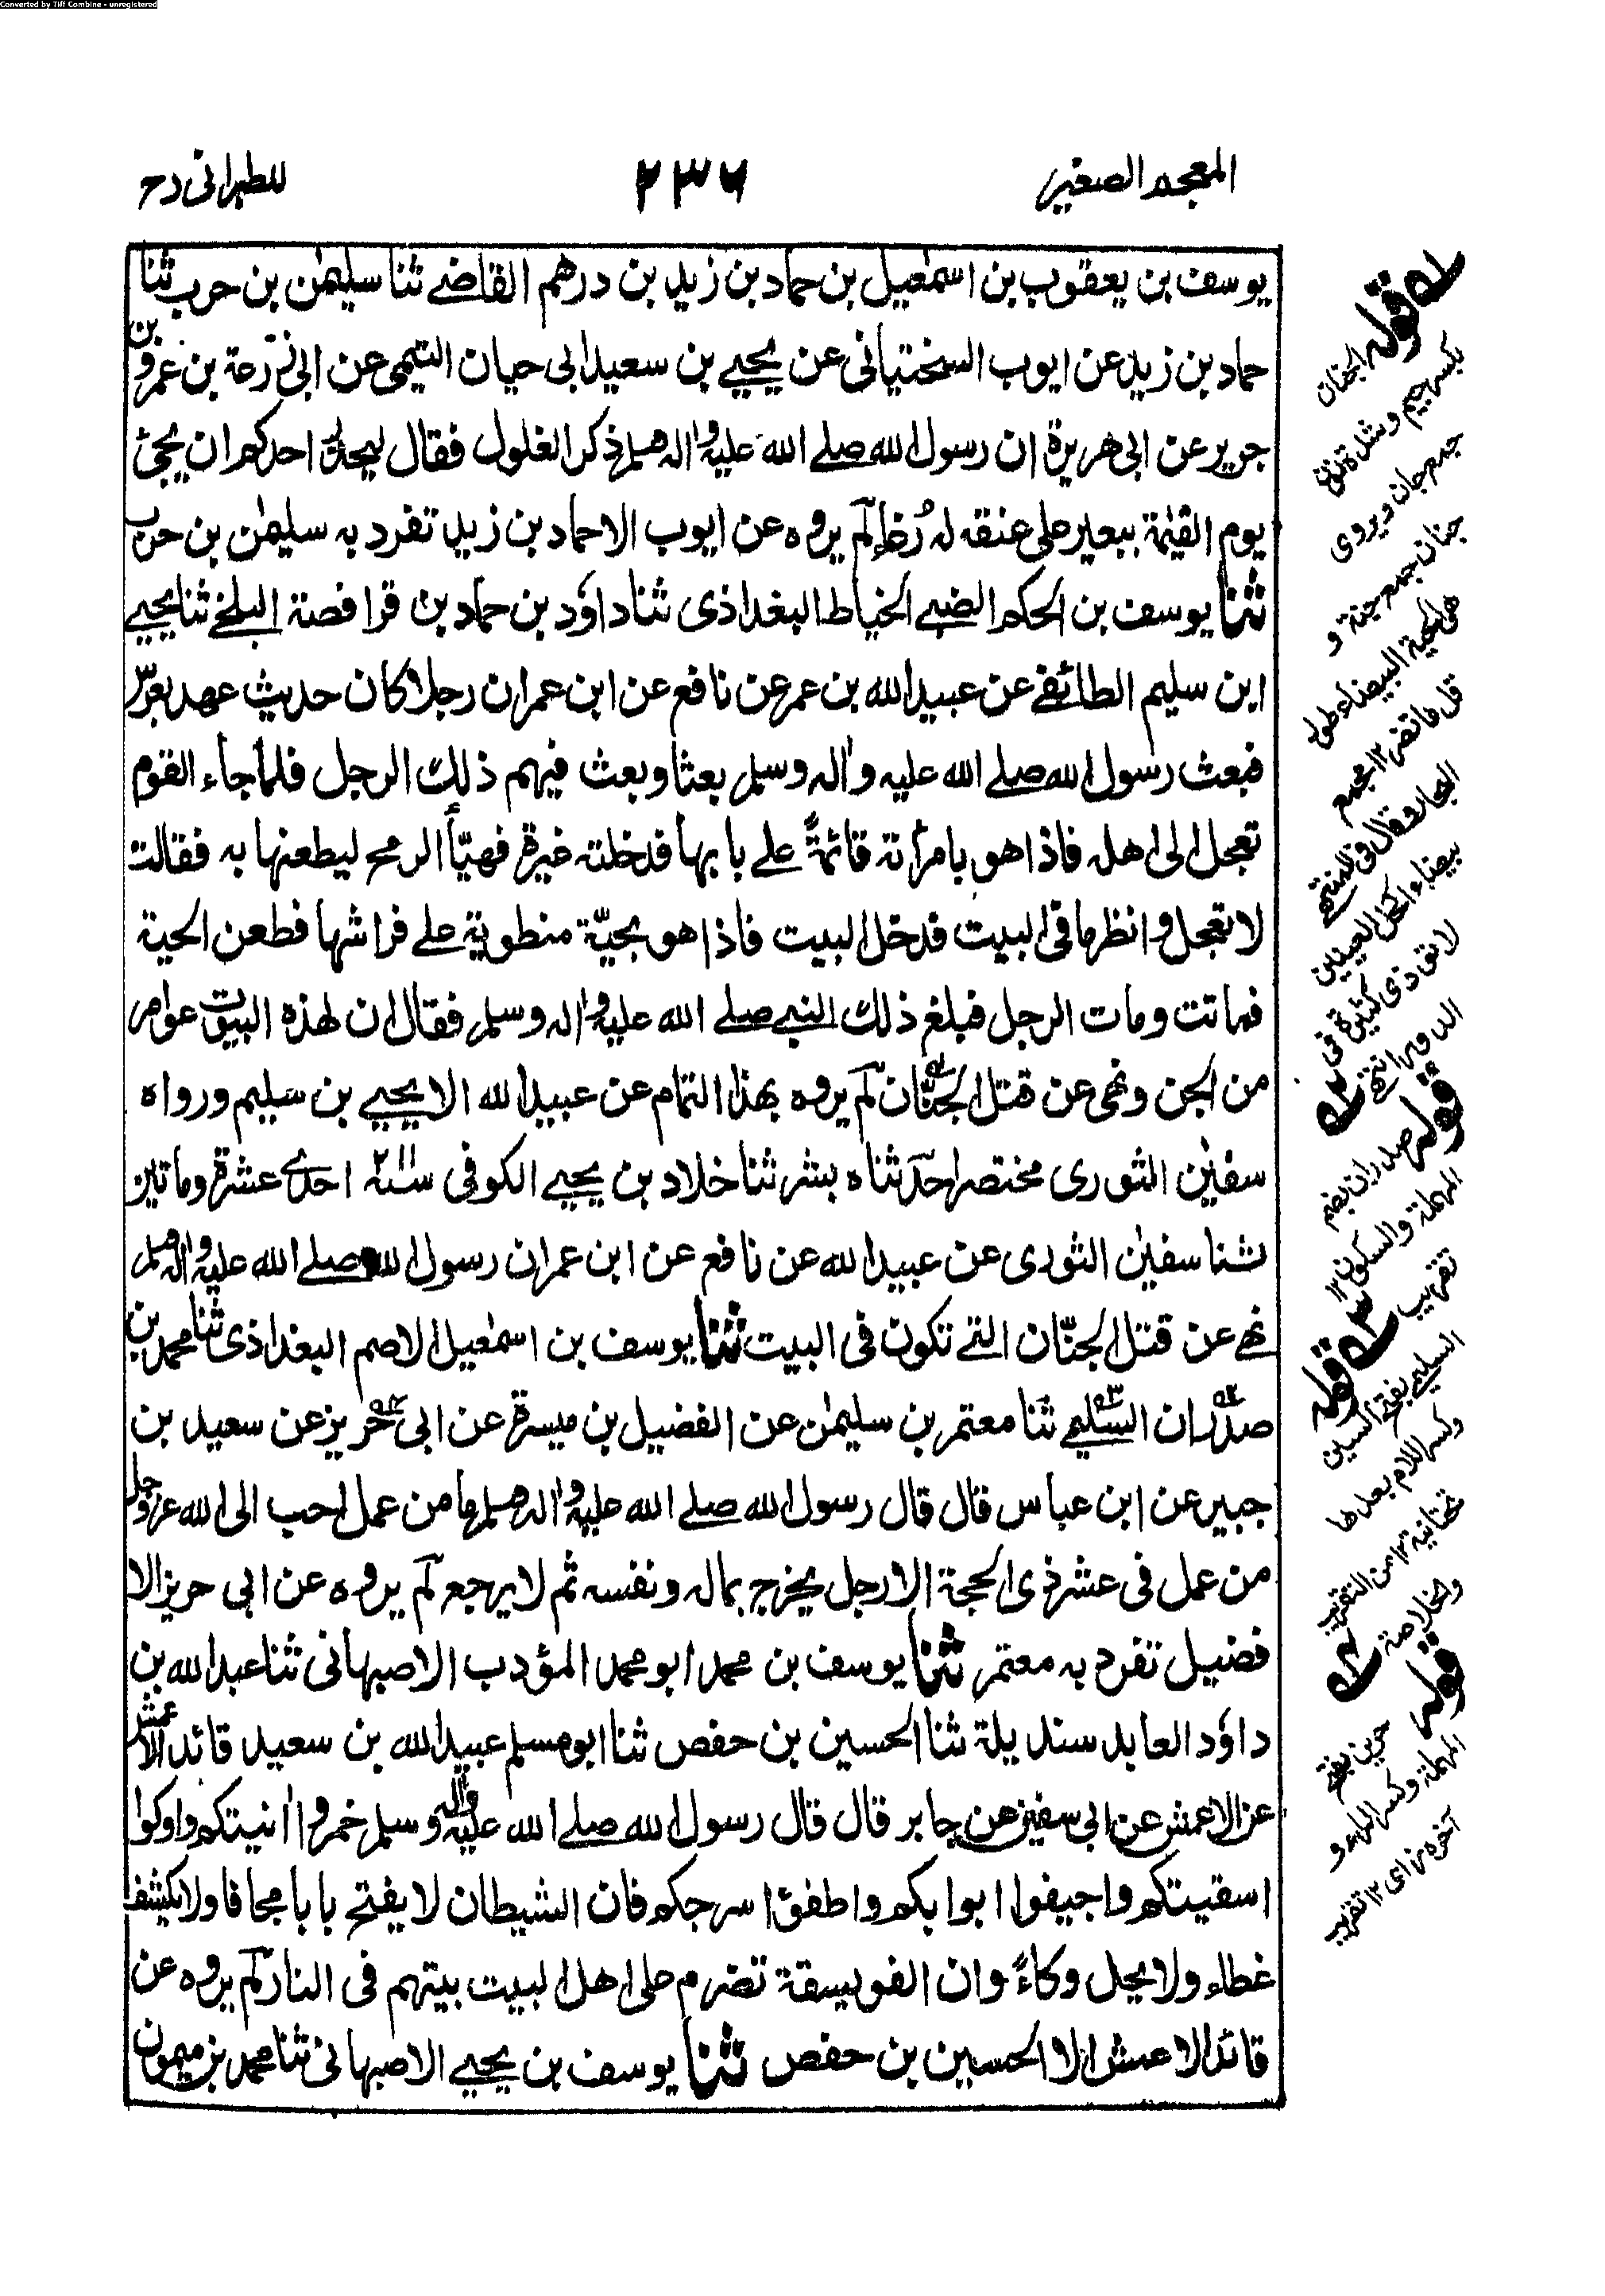 Converted by Tiff Combine - unregistered
المعجم الصغير ٢٣٦ للطبرانى رح
يوسف بن يعقوب بن اسمٰعيل بن حماد بن زيد بن درهم القاضے ثنا سليمٰن بن حرب ثنا
حماد بن زيد عن ايوب السختيانى عن يحيے بن سعيد ابى حيان التيمى عن ابى زرعة بن عمرو بن
جرير عن ابى هريرة ان رسول الله صلے الله عليه واٰله وسلم ذكر الغلول فقال احدكم ان يجئ
يوم القيٰمة ببعير على عنقه له رُغاء لم يروه عن ايوب الا حماد بن زيد تفرد به سليمٰن بن حرب
ثنا يوسف بن الحكم الضبے الخياط البغداذى ثنا داؤد بن حماد بن قرافصة البلخے ثنا يحيے
ابن سليم الطائفے عن عبيد الله بن عمر عن نافع عن ابن عمر ان رجلا كان حديث عهد بعرس
فبعث رسول الله صلے الله عليه واٰله وسلم بعثا وبعث فيهم ذلك الرجل فلما جاء القوم
تعجل الى اهله فاذا هو بامرأته قائمةً علے بابها فدخلته غيرة فهيّأ الرمح ليطعنها به فقالت
لا تعجل وانظر ما فى البيت فدخل البيت فاذا هو بحيّة منطوية علے فراشها فطعن الحية
فماتت ومات الرجل فبلغ ذلك النبے صلے الله عليه واٰله وسلم فقال ان لهذه البيوت عوامر
من الجن ونهى عن قتل الجنّان لم يروه بهذا التمام عن عبيد الله الا يحيے بن سليم ورواه
سفيٰن الثورى مختصرا حدثناه بشر ثنا خلاد بن يحيے الكوفى سنة ٢١١ احدے عشرة ومأتين
ثنا سفيٰن الثورى عن عبيد الله عن نافع عن ابن عمر ان رسول الله صلے الله عليه واٰله وسلم
نهے عن قتل الجنّان التے تكون فى البيت ثنا يوسف بن اسمٰعيل الاصم البغداذى ثنا محمد بن
صدران السليمے ثنا معتمر بن سليمٰن عن الفضيل بن ميسرة عن ابى حريز عن سعيد بن
جبير عن ابن عباس قال قال رسول الله صلے الله عليه واٰله وسلم ما من عمل احب الى الله عز وجل
من عمل فى عشر ذى الحجة الا رجل يخرج بماله ونفسه ثم لا يرجع لم يروه عن ابى حريز الا
فضيل تفرد به معتمر ثنا يوسف بن محمد ابو محمد المؤدب الاصبهانى ثنا عبد الله بن
داؤد العابد سنديلة ثنا الحسين بن حفص ثنا ابو مسلم عبيد الله بن سعيد قائد الاعمش
عن الاعمش عن ابى سفيٰن عن جابر قال قال رسول الله صلے الله عليه واٰله وسلم خمروا اٰنيتكم واوكوا
اسقيتكم واجيفوا ابوابكم واطفؤا سرجكم فان الشيطان لا يفتح بابا مجافا ولا يكشف
غطاء ولا يحل وكاءً وان الفويسقة تضرم على اهل البيت بيتهم فى النار لم يروه عن
قائد الاعمش الا الحسين بن حفص ثنا يوسف بن يحيے الاصبهانى ثنا محمد بن ميمون
قوله الجنان
بكسر جيم وشدة نون
جمع جان ويروى
جنان جمع جنة و
هى الحية البيضاء
١٢ مجمع
البحار وقال فى
بيضاء اكحل العينين
لا تؤذى كثيرة فى
الدور انتهى
قوله صدران بضم
المهملة والسكون ١٢
تقريب
قوله
السليمے بفتح السين
وكسر اللام بعدها
تحتانية ١٢ من التقريب
والخلاصة
قوله
حريز بفتح
المهملة وكسر الراء و
آخره زاى ١٢ تقريب